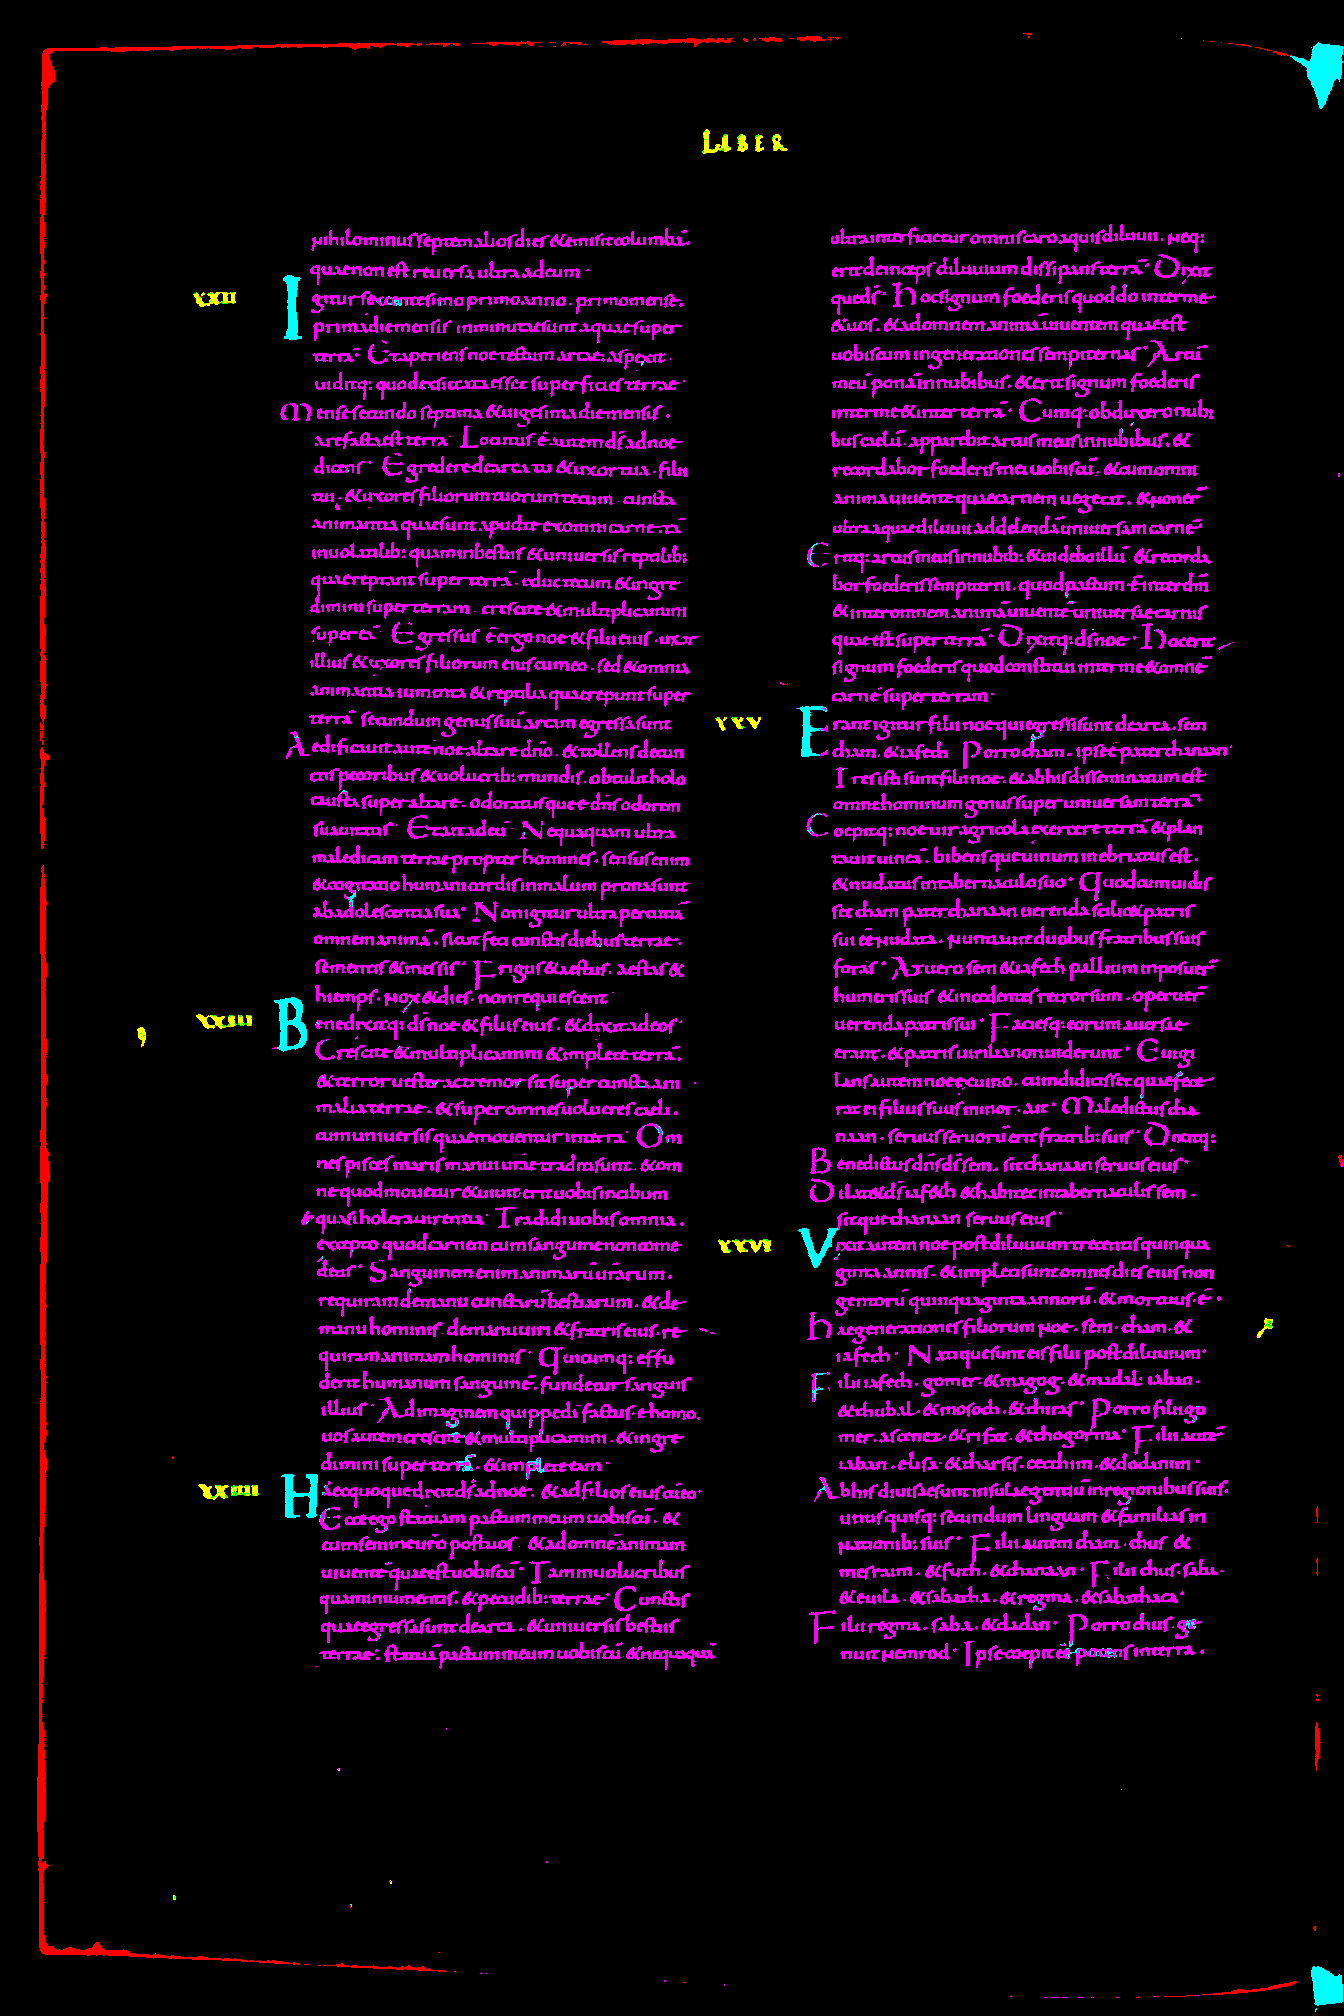 LIBER
nihilominus septem alios dies & emisit columbā.
quae non est reuersa ultra ad eum·
XXII
Igitur sexcentesimo primo anno. primo mense.
prima die mensis inminutae sunt aquae super
terrā· Et aperiens noe tectum arcae. aspexit.
uiditq: quod exsiccata esset superficies terrae·
Mense secundo septima & uigesima die mensis.
arefacta est terra· Locutus ē autem ds ad noe
dicens· Egredere de arca tu & uxor tua. filii
tui. & uxores filiorum tuorum tecum cuncta
animantia quae sunt apud te ex omni carne tā
in uolatilib: quam in bestiis & uniuersis reptilib:
quae reptant super terrā. educ tecum & ingre
dimini super terram crescite & multiplicamini
super eā· Egressus ē ergo noe & filii eius. uxor
illius & uxores filiorum eius cum eo. sed & omnia
animantia iumenta & reptilia quae repunt super
terrā secundum genus suū arcam egressa sunt
Aedificauit autē noe altare dn̄o. & tollens de cun
ctis pecoribus & uolucrib: mundis. obtulit holo
causta super altare. odoratusque ē dn̄s odorem
suauitatis· Et ait ad eū· Nequaquam ultra
maledicam terrae propter homines. sensus enim
& cogitatio humani cordis in malum prona sunt
ab adolescentia sua· Non igitur ultra percutiā
omnem animā. sicut feci cunctis diebus terrae.
sementis & messis· Frigus & aestus. aestas &
hiemps. nox & dies. non requiescent·
XXIII
Benedixitq: ds noe & filiis eius. & dixit ad eos·
Crescite & multiplicamini & implete terrā.
& terror uester ac tremor sit super cuncta ani
malia terrae. & super omnes uolucres caeli.
cum uniuersis quae mouentur in terra· Om
nes pisces maris manui ūrae traditi sunt. & om
ne quod mouetur & uiuit erit uobis in cibum
quasi holera uirentia· Tradidi uobis omnia.
excepto quod carnem cum sanguine non come
detis· Sanguinem enim animarū ūrarum.
requiram de manu cunctarū bestiarum. & de
manu hominis de manu uiri & fratris eius. re
quiram animam hominis· Quicumq: effu
derit humanum sanguinē. fundetur sanguis
illius· Ad imaginem quippe di factus ē homo.
uos autem crescite & multiplicamini. & ingre
dimini super terrā. & implete eam·
XXIIII
Haec quoque dixit ds ad noe. & ad filios eius cū eo·
Ecce ego statuam pactum meum uobiscū. &
cum semine uro post uos & ad omnē animam
uiuentē quae est uobiscū· Tam in uolucribus
quam in iumentis. & pecudib: terrae· Cunctis
quae egressa sunt de arca. & uniuersis bestiis
terrae: statuā pactum meum uobiscū & nequaquā
ultra interficietur omnis caro aquis diluuii. neq:
erit deinceps diluuium dissipans terrā· Dixit
que ds· Hoc signum foederis quod do inter me
& uos. & ad omnem animā uiuentem quae est
uobiscum in generationes sempiternas· Arcū
meū ponā in nubibus. & erit signum foederis
inter me & inter terrā· Cumq: obduxero nubi
bus caelū. apparebit arcus meus in nubibus. &
recordabor foederis mei uobiscū. & cum omni
anima uiuente quae carnem uegetat. & non er̄
ultra aquae diluuii ad delendā uniuersam carnē·
Eritq: arcus meus in nubib: & uidebo illū & recorda
bor foederis sempiterni. quod pactum ē inter dm̄
& inter omnem animā uiuentē uniuersae carnis
quae est super terrā· Dixitq: ds noe· Hoc erit
signum foederis quod constitui inter me & omnē
carnē super terram·
XXV
Erant igitur filii noe qui egressi sunt de arca. sem
cham. & iafeth Porro cham. ipse ē pater chanaan·
Tres isti sunt filii noe. & ab his disseminatum est
omne hominum genus super uniuersam terrā·
Coepitq: noe uir agricola exercere terrā & plan
tauit uineā. bibensque uinum inebriatus est.
& nudatus in tabernaculo suo· Quod cum uidis
set cham pater chanaan uerenda scilic& patris
sui eē nudata. nuntiauit duobus fratribus suis
foras· At uero sem & iafeth pallium inposuer̄
humeris suis & incedentes retrorsum. operuer̄
uerenda patris sui· Faciesq: eorum auersae
erant. & patris uirilia non uiderunt· Euigi
lans autem noe ex uino. cum didicisset quae fece
rat ei filius suus minor. ait· Maledictus cha
naan. seruus seruorū erit fratrib: suis· Dixitq:
Benedictus dn̄s ds sem. sit chanaan seruus eius·
Dilat& ds iafeth & habitet in tabernaculis sem.
sitque chanaan seruus eius·
XXVI
Vixit autem noe post diluuium trecentis quinqua
ginta annis. & impleti sunt omnes dies eius non
gentorū quinquaginta annorū. & mortuus ē.
Hae generationes filiorum noe. sem. cham. &
iafeth· Natique sunt eis filii post diluuium·
Filii iafeth. gomer. & magog. & madai. iaban.
& thubal. & mosoch. & thiras· Porro filii go
mer. ascenez & rifat. & thogorma· Filii autē
iaban. elisa. & tharsis. cetthim. & dodanim·
Ab his diuisae sunt insulae gentiū in regionibus suis.
unusquisq: secundum linguam & familias in
nationib: suis· Filii autem cham. chus &
mesraim. & futh. & chanaan· Filii chus. saba.
& euila. & sabatha. & regma. & sabathaca·
Filii regma. saba. & dadan· Porro chus ge
nuit nemrod· Ipse coepit eē potens in terra.